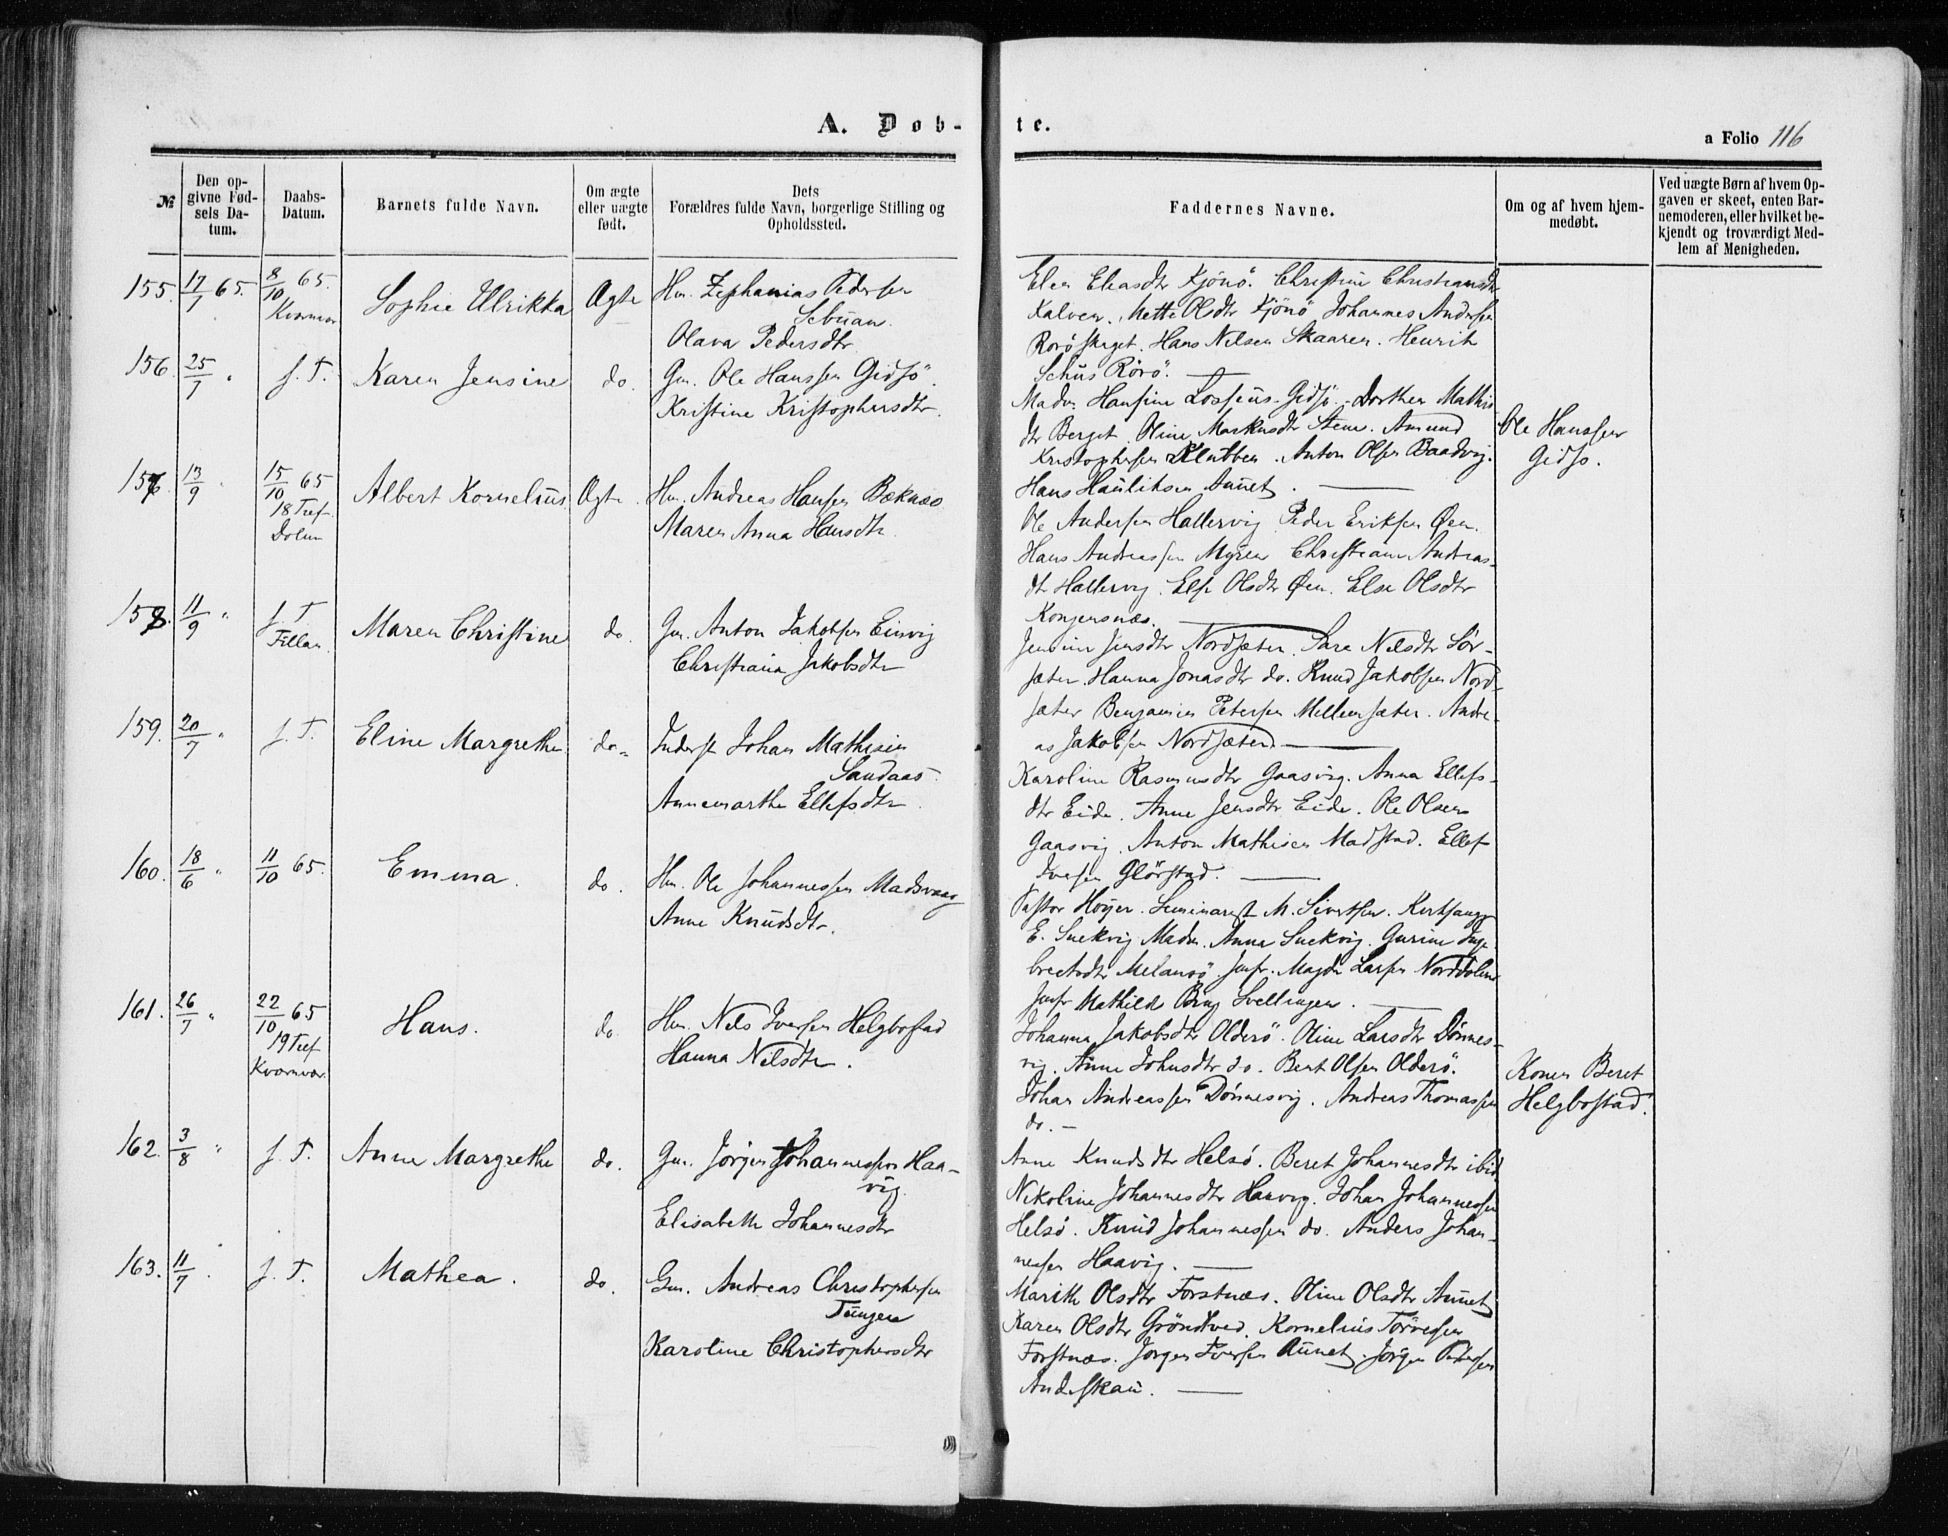 A. Døb-
te.
a Folio 116
№
Den op-
givne Fød-
sels Da-
tum.
Daabs-
Datum.
Barnets fulde Navn.
Om ægte
eller uægte
født.
Dets
Forældres fulde Navn, borgerlige Stilling og
Opholdssted.
Faddernes Navne.
Om og af hvem hjem-
medøbt.
Ved uægte Børn af hvem Op-
gaven er skeet, enten Bar-
nemoderen, eller hvilket be-
kjendt og troværdigt Med-
lem af Menigheden.
155. 17/7 65. 8/10 65. Sophie Ulrikka Ægte Hm. Zephanias Pedersen
Kvænvær
Olava Pedersdtr
Elen Eliasdtr Kjönö. Christine Christiansdtr
Kalven. Mette Olsdtr Kjönö Johannes Andersen
Hans Nilsen Skaaren. Henrik
Schus Rörö.
156. 25/7 " f. T. Karen Jensine do. Gm. Ole Hanssen Gidsö.
Kristine Kristophersdtr.
Madm. Hansine Lossius Gidsö. Dorthea Mathis
dtr Berget. Oline Markusdtr Steen. Amund
Kristophersen Klubben. Anton Olsen Baadvig.
Hans Hauliksen Aunet.
Ole Hanssen
Gidsö.
157. 13/9 " 15/10 65 Albert Kornelius Ægte. Hm. Andreas Hansen Bæknæs
18 Tref.
Dolm
Maren Anna Hansdtr.
Ole Andersen Hallervig Peder Eriksen Øen.
Hans Andreassen Myren Christiane Andreas-
dtr Hallervig. Else Olsdtr Øen. Else Olsdtr
Kongensnæs.
158. 11/9 " f. T. Maren Christine do. Gm. Anton Jakobsen Einvig
Fillan.
Christiana Jakobsdtr
Jensine Jensdtr Nordsæter. Sara Nilsdtr Sör-
sæter. Hanna Jonasdtr do. Knud Jakobsen Nord-
sæter Benjamin Petersen Mellemsæter. Andre-
as Jakobsen Nordsæter.
159. 20/7 " f. T. Eline Margrethe do. Inderst Johan Mathisen
Sandaas.
Annemarthe Ellefsdtr.
Karoline Rasmusdtr Gaasvig. Anna Ellefs-
dtr Eide. Anne Jensdtr Eide. Ole Olsen
Gaasvig. Anton Mathisen Madstad. Ellef
Iversen Glörstad.
160. 18/6 " 11/10 65. Emma. do. Hm. Ole Johannessen Madsvaag
Anne Knudsdtr.
Pastor Høyer. Seminarist M. Sivertsen. Kirksanger
E. Snekvig Madm. Anna Snekvig. Gurine Inge-
brectsdtr Melansö. Jmfr. Magda Larsen Norddolmn
Jmfr Mathilde Bing Svellingen.
161. 26/7 " 22/10 65 Hans. do. Hm. Nels Iversen Helgbostad
19 Tref
Kvænvær.
Hanna Nilsdtr.
Johanna Jakobsdtr Olderö. Oline Larsdtr Dønnes-
vig. Anne Johnsdtr do. Bert Olsen Olderö.
Johan Andreassen Dønnesvig. Andreas Thomassen
do. -
Konen Beret
Helgbostad.
162. 3/8 " f. T. Anne Margrethe do. Gm. Jörgen Johannessen Haa-
vig.
Elisabeth Johannesdtr
Anne Knudsdtr Helsö. Beret Johannesdtr ibid
Nikoline Johannesdtr Haavig. Johan Johannessen
Helsö. Knud Johannessen do. Anders Johan-
nessen Haavig.
163. 11/7 . f. T. Mathea. do. Gm. Andreas Christophersen
Tungen
Karoline Christophersdtr
Marith Olsdtr Forstnæs. Oline Olsdtr Aunet
Karen Olsdtr Gröndtved. Kornelius
Forstnæs. Jorgen Iversen Aunet. Jörgen Petersen
Andeskau.